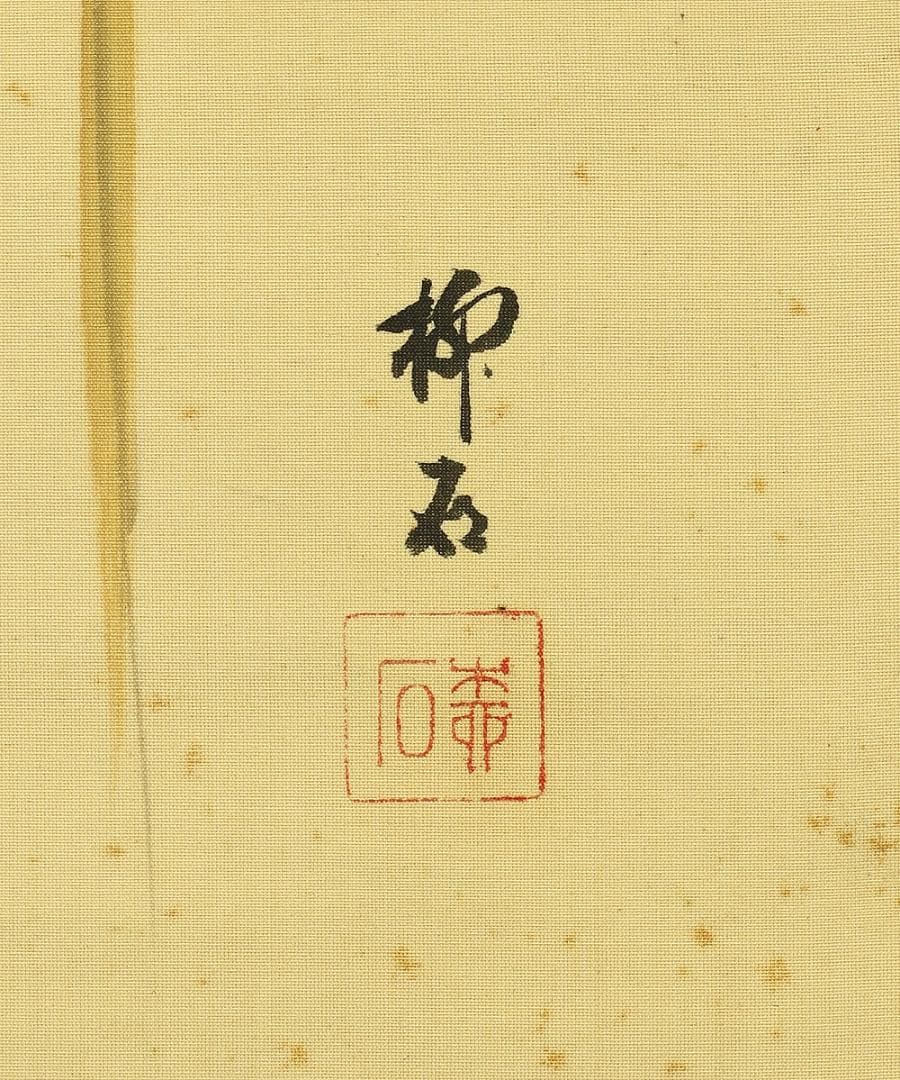 柳石
柳石